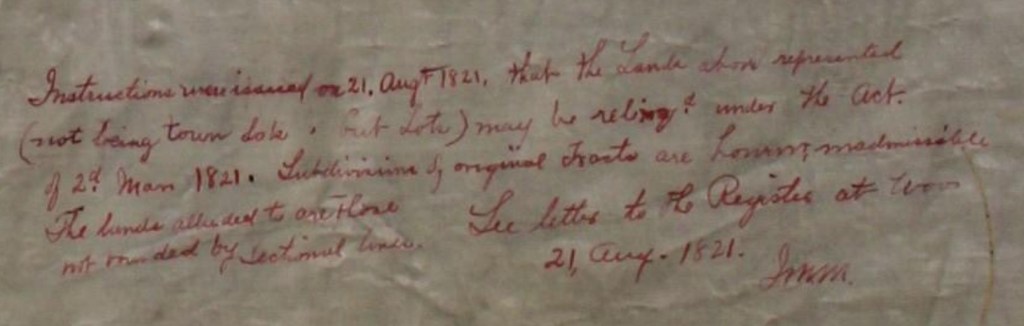 Instructions were issued on 21. Augt 1821, that the Lands above represented
(not being town lots, but Lots) may be relinqd under the Act.
of 2d Mar 1821. Subdivisions of original Tracts are however inadmissible
The lands alluded to are those
not rounded by sectional lines.
See letter to the Register at
21, Aug. 1821.